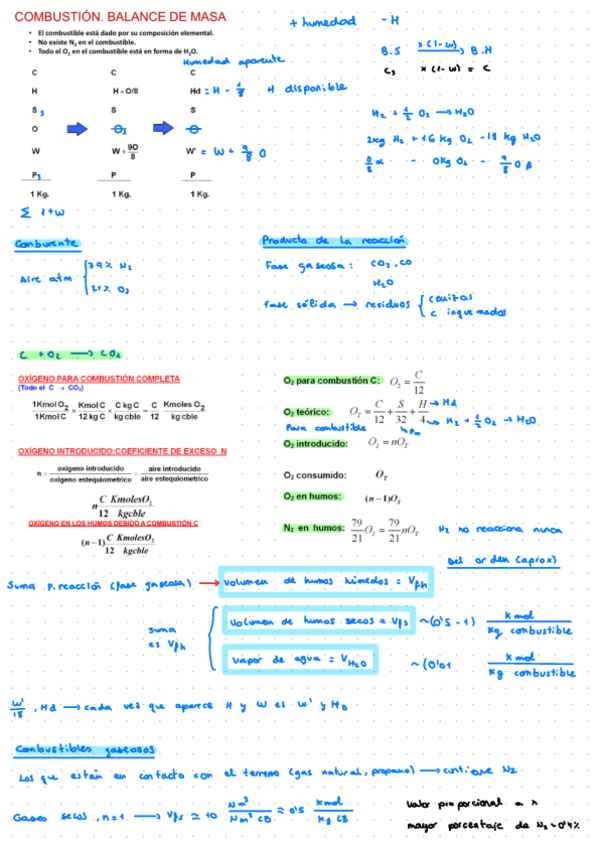 COMBUSTIÓN. BALANCE DE MASA
+ humedad - H
• El combustible está dado por su composición elemental.
• No existe N₂ en el combustible.
• Todo el O₂ en el combustible está en forma de H₂O.
B.S x(1-w) B.H
C₃ x(1-w) = C
Humedad aparente
C C C
H H - O/8 Hd = H - 1/8 H disponible
S₃ S S
O O₃ O
W W + 9O/8 W' = W + 9/8 O
P₃ P P
1 Kg. 1 Kg. 1 Kg.
Σ 1+w
H₂ + 1/2 O₂ → H₂O
2kg H₂ + 16 kg O₂ - 18 kg H₂O
O/8 α - OKg O₂ - 9/8 O β
Comburente
Aire atm { 79% N₂
21% O₂
Producto de la reacción
Fase gaseosa: CO₂, CO
H₂O
Fase sólida → residuos { cenizas
C inquemados
C + O₂ → CO₂
OXÍGENO PARA COMBUSTIÓN COMPLETA
(Todo el C → CO₂)
1Kmol O₂/1Kmol C × Kmol C/12 kg C × C kg C/kg cble = C/12 Kmoles O₂/kg cble
OXÍGENO INTRODUCIDO:COEFICIENTE DE EXCESO N
n = oxigeno introducido/oxigeno estequiometrico = aire introducido/aire estequiometrico
n C/12 KmolesO₂/kgcble
OXÍGENO EN LOS HUMOS DEBIDO A COMBUSTIÓN C
(n-1) C/12 KmolesO₂/kgcble
O₂ para combustión C: O₂ = C/12
O₂ teórico: O_T = C/12 + S/32 + H/4 → Hd
Para combustible Pm H₂ + 1/2 O₂ → H₂O
O₂ introducido: O₂ = nO_T
O₂ consumido: O_T
O₂ en humos: (n-1)O_T
N₂ en humos: 79/21 O₂ = 79/21 nO_T N₂ no reacciona nunca
Del orden (aprox)
Suma P. reacción (fase gaseosa) → Volumen de humos húmedos = Vfh
suma es Vfh
Volumen de humos secos = Vfs ~(0'5 - 1) kmol/kg combustible
Vapor de agua = V_H₂O ~(0'01 kmol/kg combustible
W'/18, Hd → cada vez que aparece H y W es W' y HD
Combustibles gaseosos
Los que están en contacto con el terreno (gas natural, propano) → contiene N₂
Gases secos, n=1 → Vfs ≃ 10 Nm³/Nm³ CB ≃ 0'5 kmol/kg CB
Valor proporcional a n
mayor porcentaje de N₂ ~0'4%